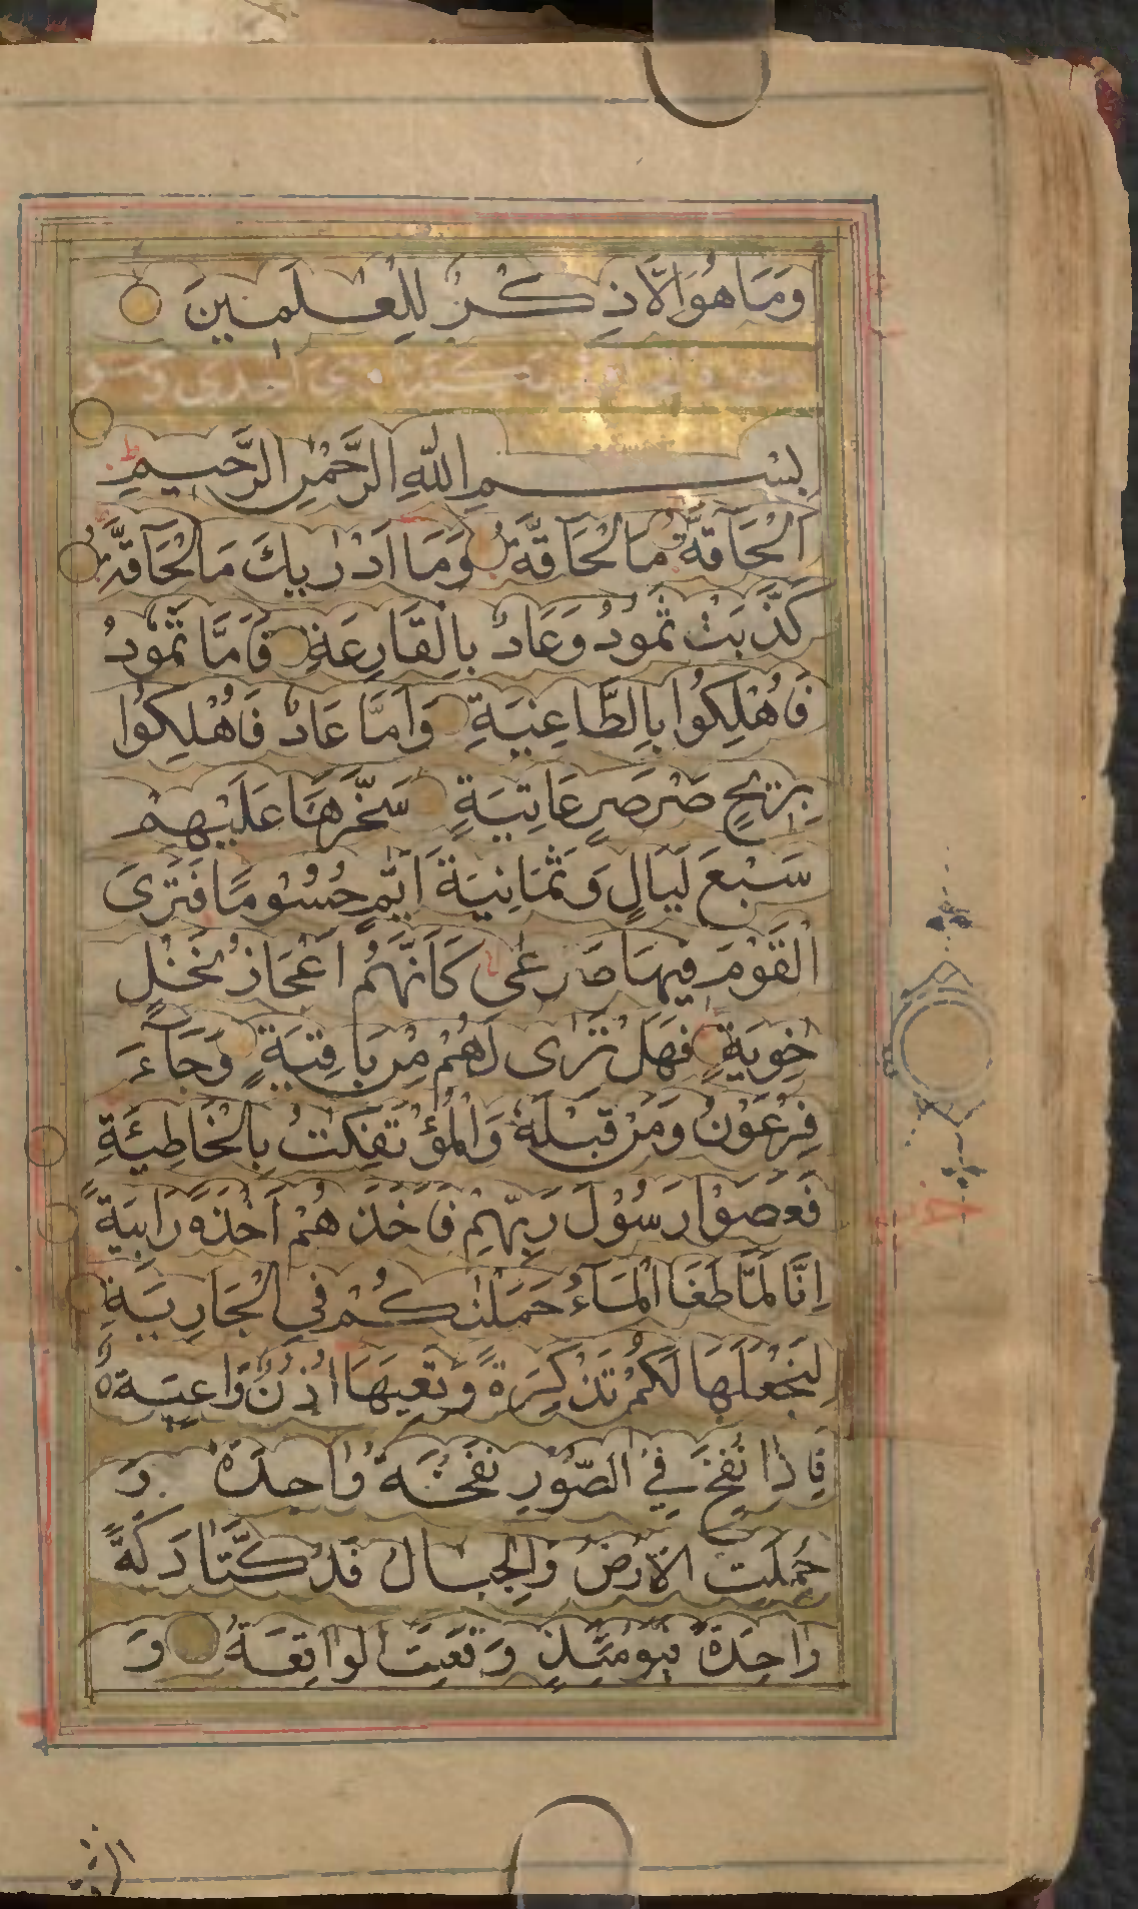 وَمَا هُوَ اِلَّا ذِكْرٌ لِلْعٰلَمِينَ
بِسْمِ اللّٰهِ الرَّحْمٰنِ الرَّحِيمِ
اَلْحَاقَّةُ مَا الْحَاقَّةُ وَمَا اَدْرٰيكَ مَا الْحَاقَّةُ
كَذَّبَتْ ثَمُودُ وَعَادٌ بِالْقَارِعَةِ فَاَمَّا ثَمُودُ
فَاُهْلِكُوا بِالطَّاغِيَةِ وَاَمَّا عَادٌ فَاُهْلِكُوا
بِرِيحٍ صَرْصَرٍ عَاتِيَةٍ سَخَّرَهَا عَلَيْهِمْ
سَبْعَ لَيَالٍ وَثَمَانِيَةَ اَيَّامٍ حُسُوْمًا فَتَرَى
الْقَوْمَ فِيهَا صَرْعٰى كَاَنَّهُمْ اَعْجَازُ نَخْلٍ
خَاوِيَةٍ فَهَلْ تَرٰى لَهُمْ مِنْ بَاقِيَةٍ وَجَآءَ
فِرْعَوْنُ وَمَنْ قَبْلَهُ وَالْمُؤْتَفِكٰتُ بِالْخَاطِئَةِ
فَعَصَوْا رَسُوْلَ رَبِّهِمْ فَاَخَذَهُمْ اَخْذَةً رَابِيَةً
اِنَّا لَمَّا طَغَا الْمَآءُ حَمَلْنٰكُمْ فِي الْجَارِيَةِ
لِنَجْعَلَهَا لَكُمْ تَذْكِرَةً وَتَعِيَهَا اُذُنٌ وَاعِيَةٌ
فَاِذَا نُفِخَ فِي الصُّوْرِ نَفْخَةٌ وَاحِدَةٌ وَ
حُمِلَتِ الْاَرْضُ وَالْجِبَالُ فَدُكَّتَا دَكَّةً
وَاحِدَةً فَيَوْمَئِذٍ وَقَعَتِ الْوَاقِعَةُ وَ